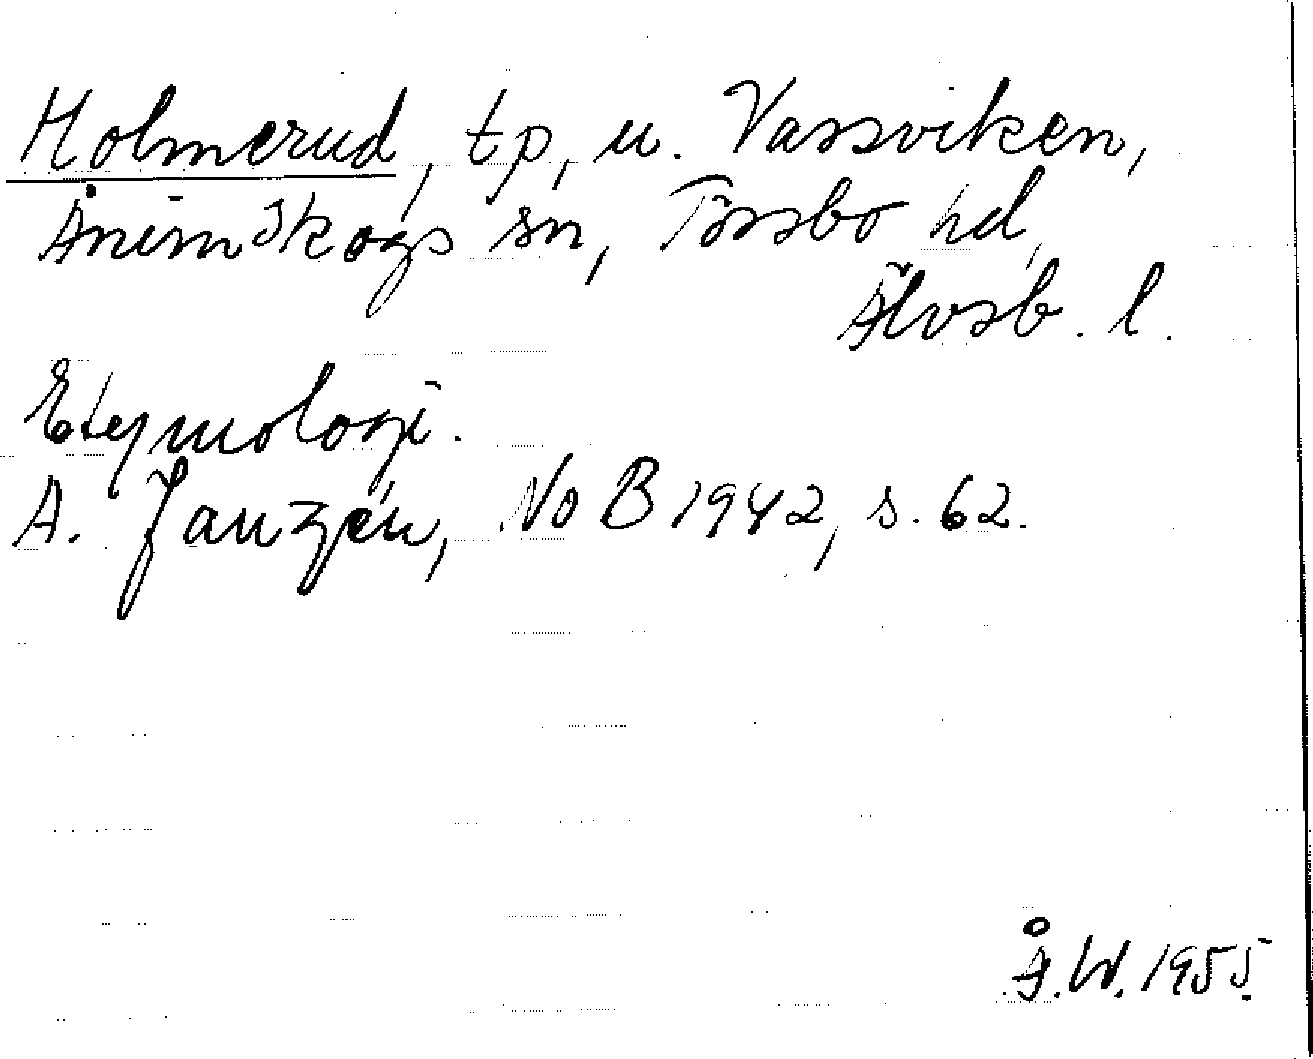 Holmerud, tp, u. Vassviken,
Ånimskogs sn, Tössbo hd,
Älvsb. l.
Etymologi.
A. Janzén, NoB 1942, s. 62.
Å.W. 1955.